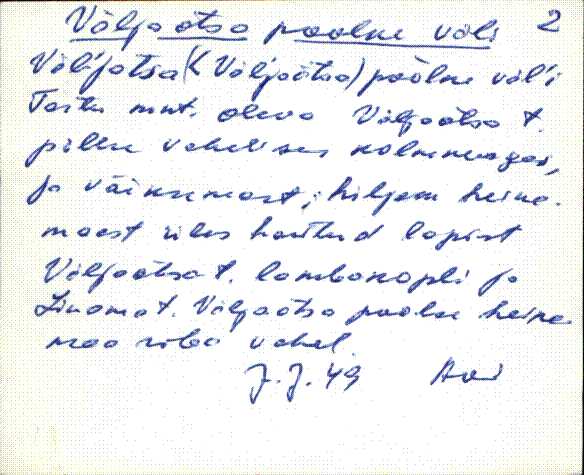 Väljaotsa poolne väli 2
Väl'jotsa (< Väl'jaotsa) poolne väl'i
Tartu mnt. oleva Väljaotsa t.
põllu vahelises kolmnurgas,
ja väiksemast; hiljem heina-
maast üles haritud lapist
Väljaotsa t. lambakopli ja
Linama t. Väljaotsa poolse heina-
maa riba vahel.
J. J. 49